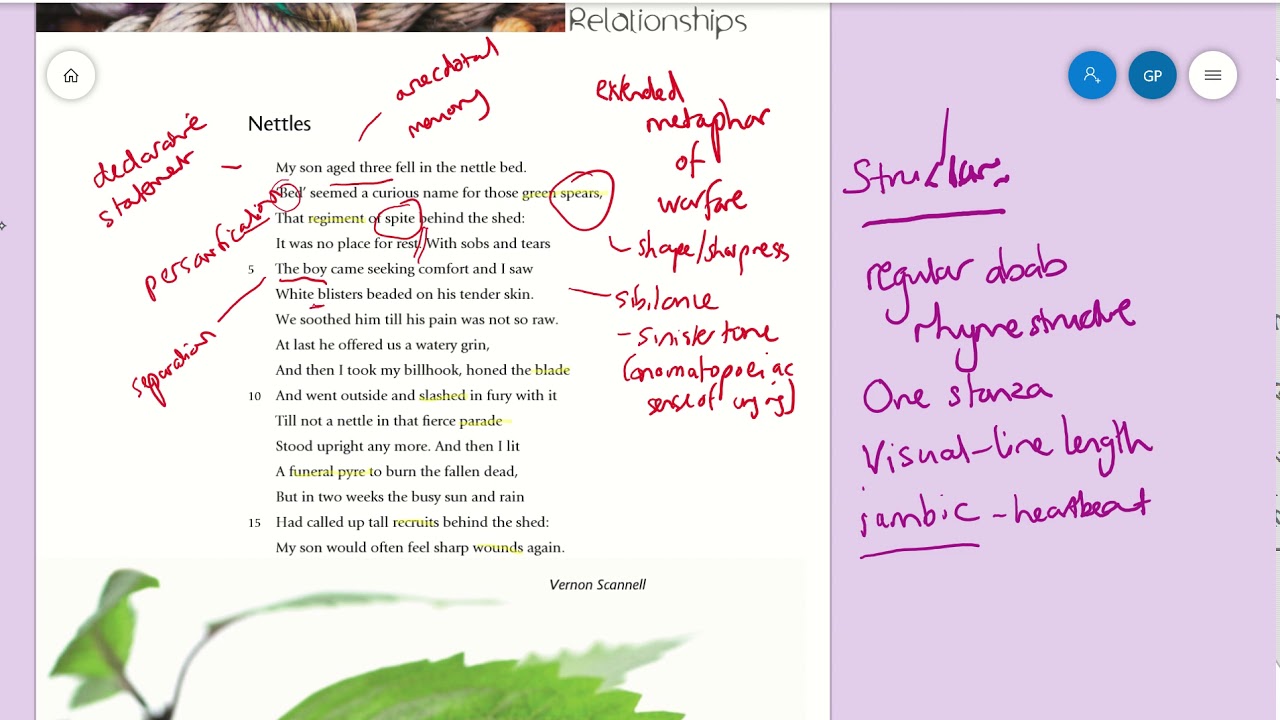 Relationships
GP
Nettles
My son aged three fell in the nettle bed.
'Bed' seemed a curious name for those green spears,
That regiment of spite behind the shed:
It was no place for rest. With sobs and tears
5 The boy came seeking comfort and I saw
White blisters beaded on his tender skin.
We soothed him till his pain was not so raw.
At last he offered us a watery grin,
And then I took my billhook, honed the blade
10 And went outside and slashed in fury with it
Till not a nettle in that fierce parade
Stood upright any more. And then I lit
A funeral pyre to burn the fallen dead,
But in two weeks the busy sun and rain
15 Had called up tall recruits behind the shed:
My son would often feel sharp wounds again.
Vernon Scannell
declarative
statement
personification
separation
anecdotal
memory
extended
metaphor
of
warfare
shape/sharpness
sibilance
- sinister tone
(onomatopoeiac
sense of crying)
Structure
regular abab
rhyme structure
One stanza
Visual - line length
iambic - heartbeat